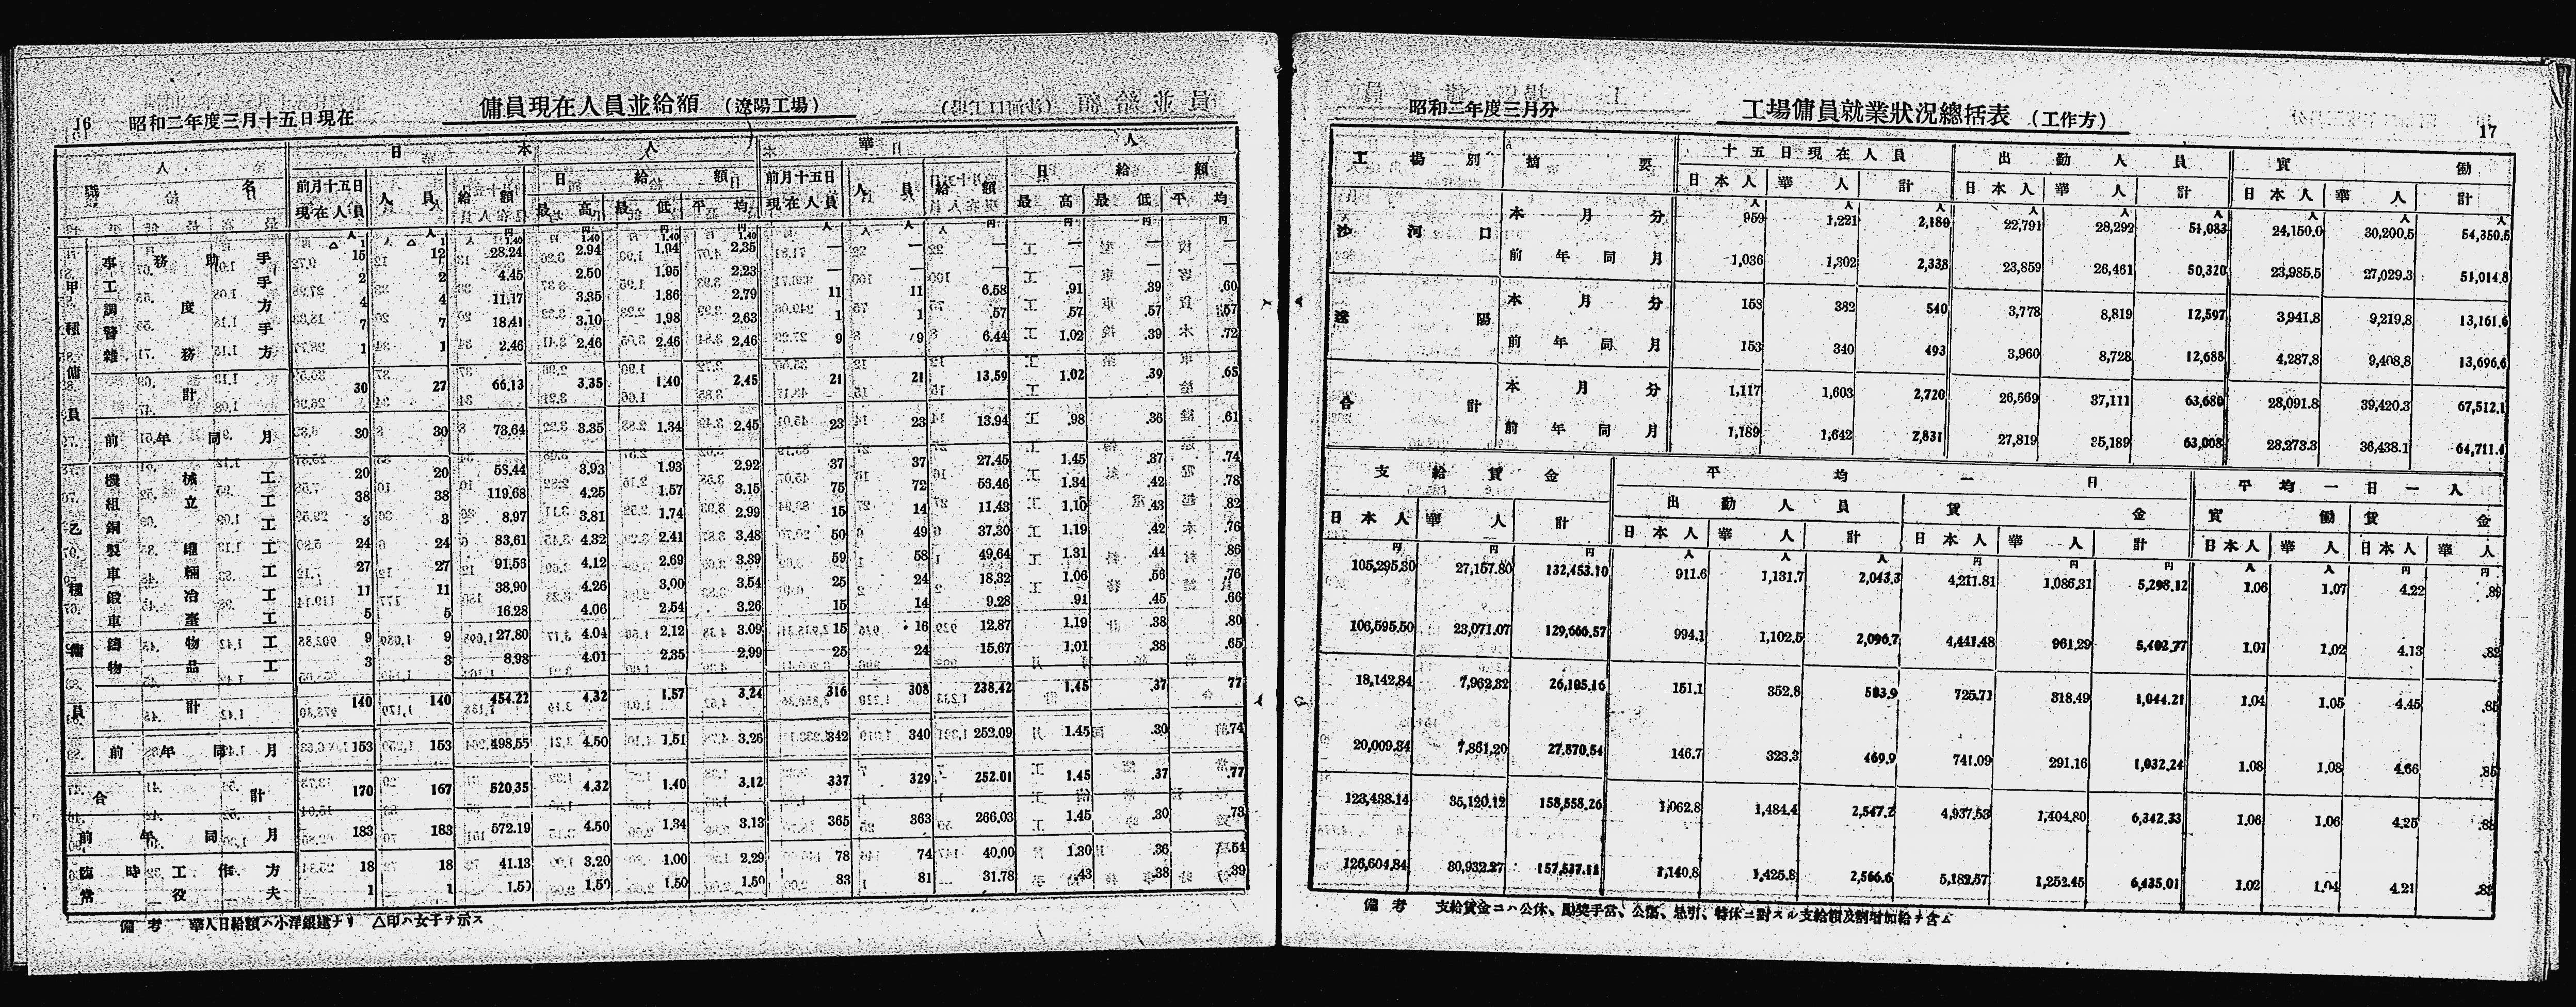 16 昭和二年度三月十五日現在 傭員現在人員並給額 (遼陽工場)
職 人 傭 名 日本人 華人
前月十五日現在人員 人員 給額 日給額 前月十五日現在人員 人員 給額 日給額
最高 最低 平均 最高 最低 平均
人 人 円 円 円 円 人 人 円 円 円 円
甲種傭員
事務助手 △1 15 △1 12 1.40 28.24 1.40 2.94 1.40 1.94 1.40 2.35 — — — — — —
工手 2 2 4.45 2.50 1.95 2.23 — — — — — —
調度方 4 4 11.17 3.35 1.86 2.79 11 11 6.58 .91 .39 .60
警手 7 7 18.41 3.10 1.98 2.63 1 1 .57 .57 .57 .57
雜務方 1 1 2.46 2.46 2.46 2.46 9 9 6.44 1.02 .39 .72
計 30 27 66.13 3.35 1.40 2.45 21 21 13.59 1.02 .39 .65
前年同月 30 30 73.64 3.35 1.34 2.45 23 23 13.94 .98 .36 .61
乙種傭員
機械工 20 20 58.44 3.93 1.93 2.92 37 37 27.45 1.45 .37 .74
組立工 38 38 119.68 4.25 1.57 3.15 75 72 56.46 1.34 .42 .78
銅工 3 3 8.97 3.81 1.74 2.99 15 14 11.43 1.10 .43 .82
製罐工 24 24 83.61 4.32 2.41 3.48 50 49 37.30 1.19 .42 .76
車輛工 27 27 91.53 4.12 2.69 3.39 59 58 49.64 1.31 .44 .86
鍛冶工 11 11 38.90 4.26 3.00 3.54 25 24 18.32 1.06 .56 .76
車臺工 5 5 16.28 4.06 2.54 3.26 15 14 9.28 .91 .45 .66
鑄物工 9 9 27.80 4.04 2.12 3.09 15 16 12.87 1.19 .38 .80
物品工 3 3 8.98 4.01 2.35 2.99 25 24 15.67 1.01 .38 .65
計 140 140 454.22 4.32 1.57 3.24 316 308 238.42 1.45 .37 .77
前年同月 153 153 498.55 4.50 1.51 3.26 342 340 252.09 1.45 .30 .74
合計 170 167 520.35 4.32 1.40 3.12 337 329 252.01 1.45 .37 .77
前年同月 183 183 572.19 4.50 1.34 3.13 365 363 266.03 1.45 .30 .73
臨時工作方 18 18 41.13 3.20 1.00 2.29 78 74 40.00 1.30 .36 .54
常役夫 1 1 1.50 1.50 1.50 1.50 83 81 31.78 .43 .38 .39
備考 華人日給額ハ小洋銀建ナリ △印ハ女子ヲ示ス
昭和二年度三月分 工場傭員就業狀況總括表 (工作方) 17
工場別 摘要 十五日現在人員 出勤人員 實働
日本人 華人 計 日本人 華人 計 日本人 華人 計
人 人 人 人 人 人 人 人 人
沙河口 本月分 959 1,221 2,180 22,791 28,292 51,083 24,150.0 30,200.5 54,350.5
前年同月 1,036 1,302 2,338 23,859 26,461 50,320 23,985.5 27,029.3 51,014.8
遼陽 本月分 158 382 540 3,778 8,819 12,597 3,941.8 9,219.8 13,161.6
前年同月 153 340 493 3,960 8,728 12,688 4,287.8 9,408.8 13,696.6
合計 本月分 1,117 1,603 2,720 26,569 37,111 63,680 28,091.8 39,420.3 67,512.1
前年同月 1,189 1,642 2,831 27,819 35,189 63,008 28,273.3 36,438.1 64,711.4
支給賃金 平均一日 平均一日一人
出勤人員 賃金 實働 賃金
日本人 華人 計 日本人 華人 計 日本人 華人 計 日本人 華人 日本人 華人
円 円 円 人 人 人 円 円 円 人 人 円 円
105,295.30 27,157.80 132,453.10 911.6 1,131.7 2,043.3 4,211.81 1,086.31 5,298.12 1.06 1.07 4.22 .89
106,595.50 23,071.07 129,666.57 994.1 1,102.5 2,096.7 4,441.48 961.29 5,402.77 1.01 1.02 4.13 .82
18,142.84 7,962.32 26,105.16 151.1 352.8 503.9 725.71 318.49 1,044.21 1.04 1.05 4.45 .85
20,009.34 7,861.20 27,870.54 146.7 323.3 469.9 741.09 291.16 1,032.24 1.08 1.08 4.66 .85
123,438.14 35,120.12 158,558.26 1,062.8 1,484.4 2,547.2 4,937.53 1,404.80 6,342.33 1.06 1.06 4.25 .88
126,604.84 30,932.27 157,537.11 1,140.8 1,425.8 2,566.6 5,182.57 1,252.45 6,435.01 1.02 1.04 4.21 .83
備考 支給賃金ニハ公休、勤獎手當、公傷、忌引、特休ニ對スル支給額及割增加給ヲ含ム